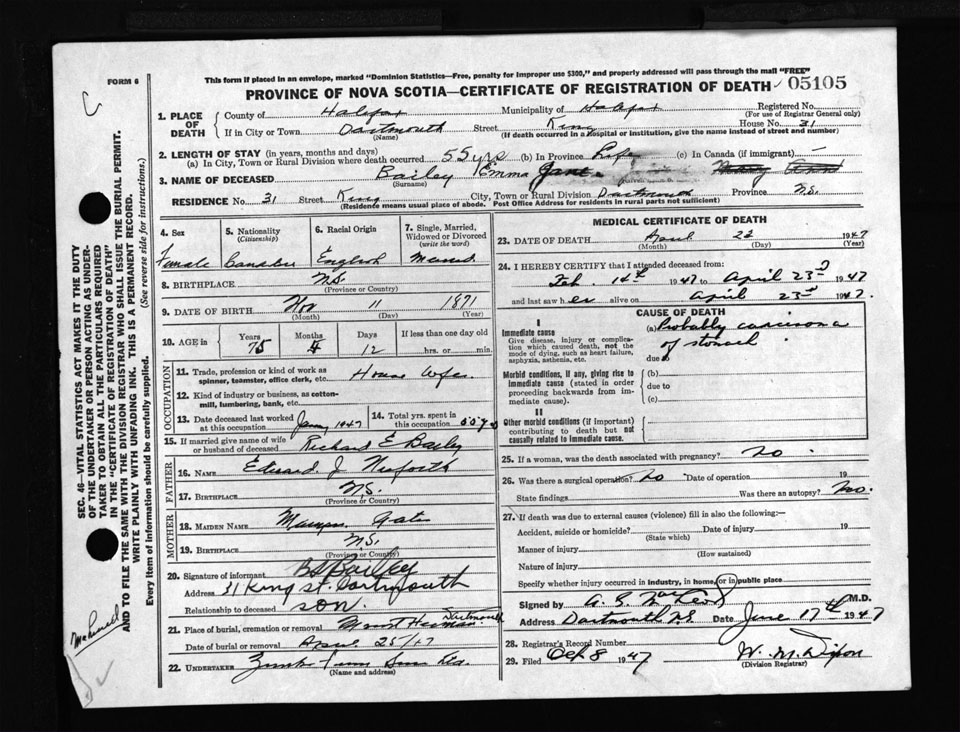 FORM 6
This form if placed in an envelope, marked "Dominion Statistics—Free, penalty for improper use $300," and properly addressed will pass through the mail "FREE"
PROVINCE OF NOVA SCOTIA—CERTIFICATE OF REGISTRATION OF DEATH 05105
1. PLACE OF DEATH County of Halifax Municipality of Halifax Registered No.
(For use of Registrar General only)
If in City or Town Dartmouth Street King House No. 31
(Name) (If death occurred in a hospital or institution, give the name instead of street and number)
2. LENGTH OF STAY (in years, months and days)
(a) In City, Town or Rural Division where death occurred 55 yrs (b) In Province Life (c) In Canada (if immigrant) —
3. NAME OF DECEASED Bailey Emma Jane
(Surname)
RESIDENCE No. 31 Street King City, Town or Rural Division Dartmouth Province N.S.
(Residence means usual place of abode. Post Office Address for residents in rural parts not sufficient)
4. Sex Female
5. Nationality (Citizenship)
6. Racial Origin English
7. Single, Married, Widowed or Divorced (write the word)
8. BIRTHPLACE N.S.
(Province or Country)
9. DATE OF BIRTH Nov 11 1871
(Month) (Day) (Year)
10. AGE in Years 75 Months Days 12 If less than one day old hrs. or min.
OCCUPATION
11. Trade, profession or kind of work as spinner, teamster, office clerk, etc. House Wife
12. Kind of industry or business, as cotton-mill, lumbering, bank, etc.
13. Date deceased last worked at this occupation 1947
14. Total yrs. spent in this occupation 55 yrs
15. If married give name of wife or husband of deceased Richard E Bailey
FATHER
16. NAME Edward J.
17. BIRTHPLACE N.S.
(Province or Country)
MOTHER
18. MAIDEN NAME
19. BIRTHPLACE N.S.
(Province or Country)
20. Signature of informant Bailey
Address 31 King St. Dartmouth
Relationship to deceased son.
21. Place of burial, cremation or removal Mount Dartmouth
Date of burial or removal 25/47
22. UNDERTAKER
(Name and address)
MEDICAL CERTIFICATE OF DEATH
23. DATE OF DEATH April 1947
(Month) (Day) (Year)
24. I HEREBY CERTIFY that I attended deceased from:
Feb. 14th 1947 to April 23rd 1947
and last saw her alive on April 23rd 1947.
CAUSE OF DEATH
I
Immediate cause (a) Probably carcinoma
Give disease, injury or complication which caused death, not the mode of dying, such as heart failure, asphyxia, asthenia, etc.
of stomach
due to
Morbid conditions, if any, giving rise to immediate cause (stated in order proceeding backwards from immediate cause).
(b)
due to
(c)
II
Other morbid conditions (if important) contributing to death but not causally related to immediate cause.
25. If a woman, was the death associated with pregnancy? No
26. Was there a surgical operation? No Date of operation 19
State findings Was there an autopsy? No.
27. If death was due to external causes (violence) fill in also the following:—
Accident, suicide or homicide? Date of injury 19
(State which)
Manner of injury
(How sustained)
Nature of injury
Specify whether injury occurred in industry, in home, or in public place
Signed by M.D.
Address Dartmouth N.S. Date June 17th 1947
28. Registrar's Record Number
29. Filed Oct 8 1947 W. M. Dixon
(Division Registrar)
SEC. 46—VITAL STATISTICS ACT MAKES IT THE DUTY
OF THE UNDERTAKER OR PERSON ACTING AS UNDER-
TAKER TO OBTAIN ALL THE PARTICULARS REQUIRED
IN THE "CERTIFICATE OF REGISTRATION OF DEATH"
AND TO FILE THE SAME WITH THE DIVISION REGISTRAR WHO SHALL ISSUE THE BURIAL PERMIT.
WRITE PLAINLY WITH UNFADING INK. THIS IS A PERMANENT RECORD.
Every item of information should be carefully supplied. (See reverse side for instructions.)